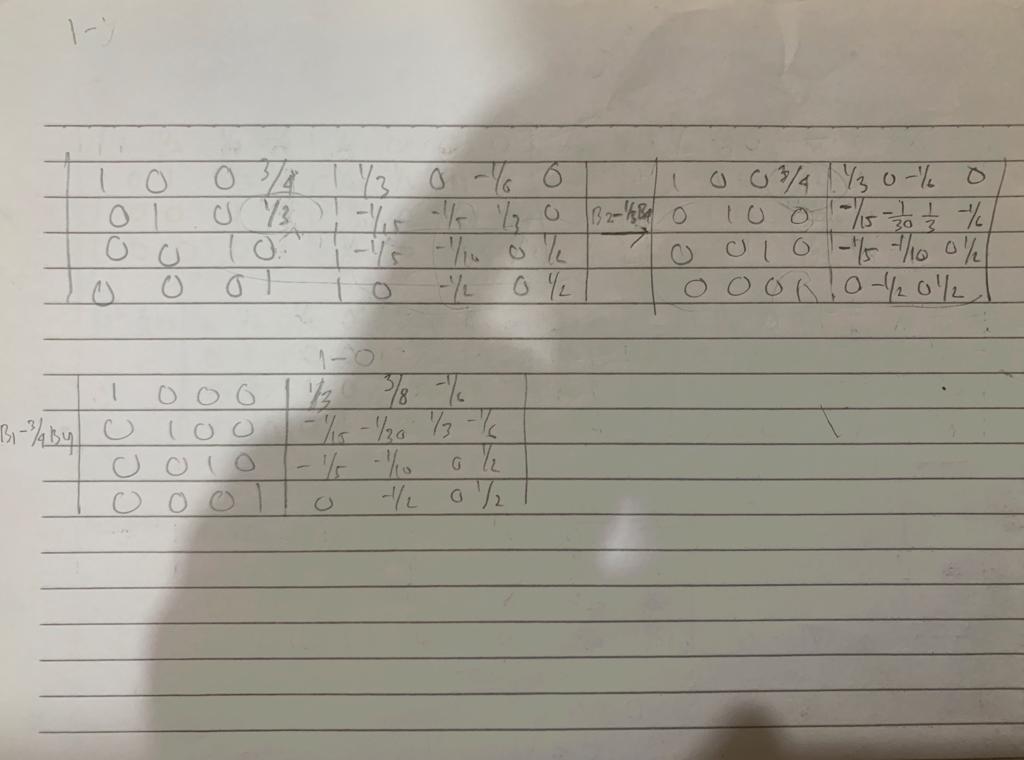 1 0 0 3/4 | 1/3 0 -1/6 0
0 1 0 1/3 | -1/15 -1/5 1/3 0
0 0 1 0 | -1/5 -1/10 0 1/2
0 0 0 1 | 0 -1/2 0 1/2
B2-1/3B4 →
1 0 0 3/4 | 1/3 0 -1/6 0
0 1 0 0 | -1/15 -1/30 1/3 -1/6
0 0 1 0 | -1/5 -1/10 0 1/2
0 0 0 1 | 0 -1/2 0 1/2
1-0
B1-3/4B4
1 0 0 0 | 1/3 3/8 -1/6
0 1 0 0 | -1/15 -1/30 1/3 -1/6
0 0 1 0 | -1/5 -1/10 0 1/2
0 0 0 1 | 0 -1/2 0 1/2